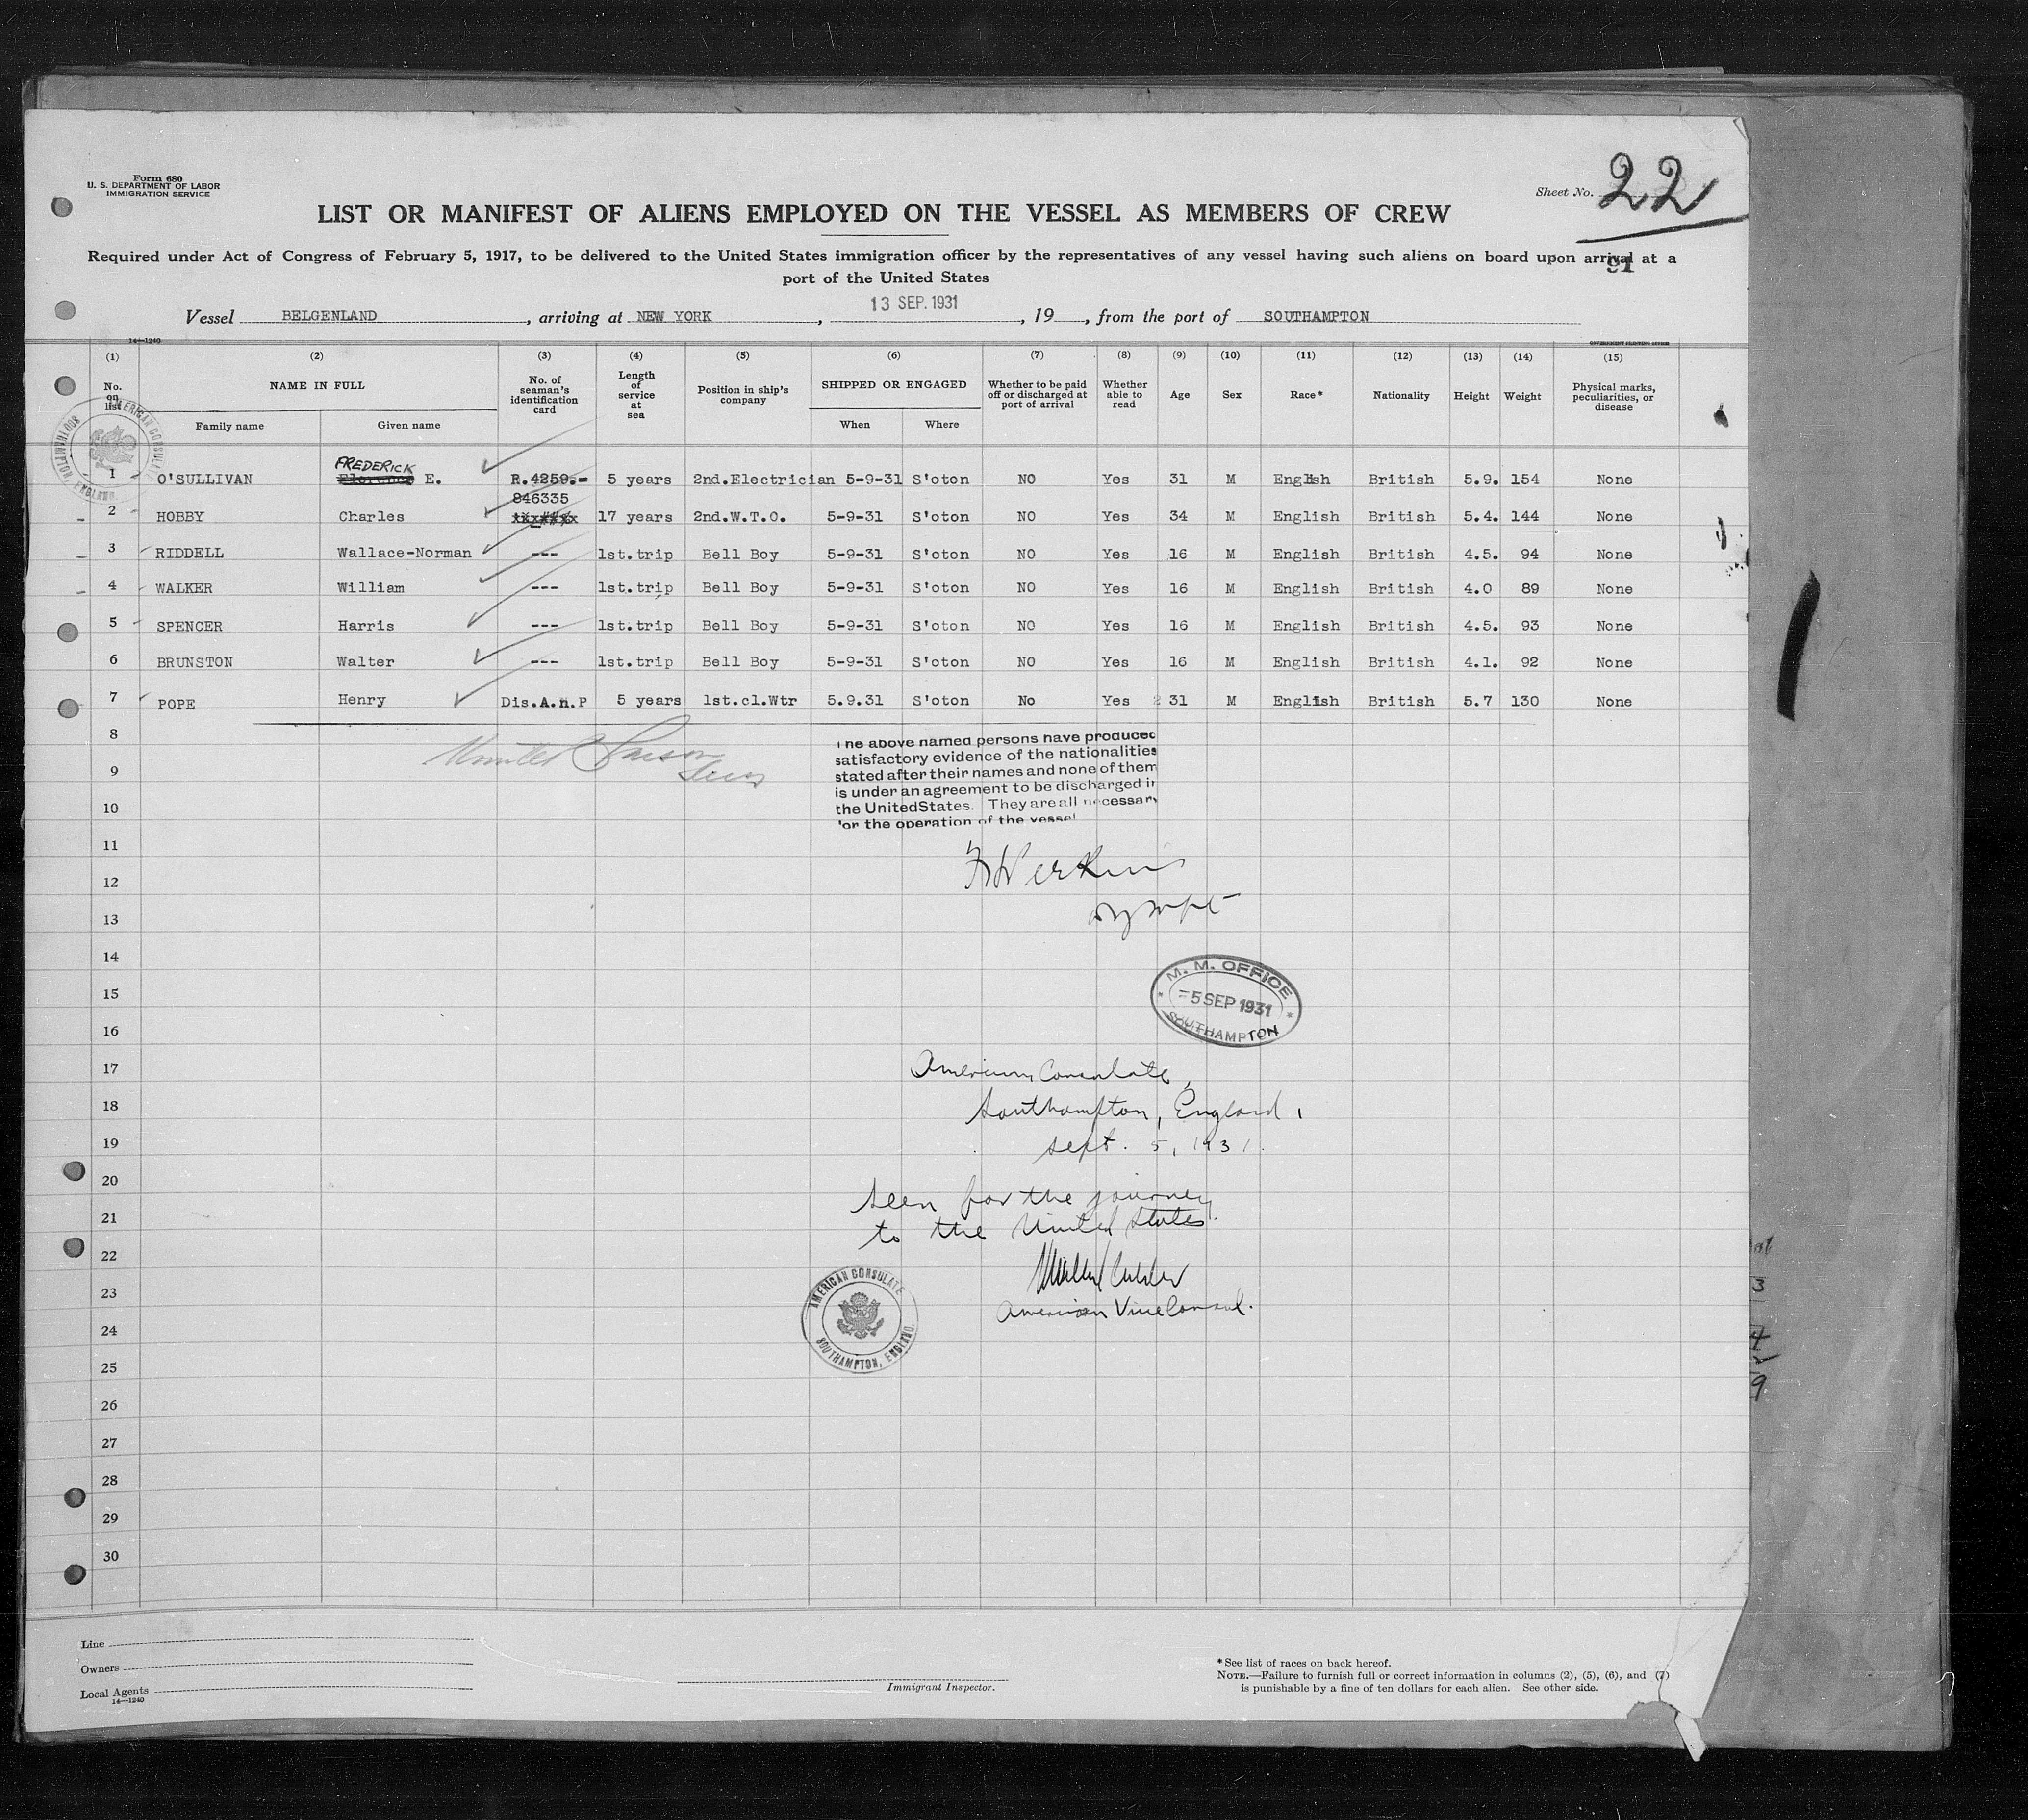 Form 680
U. S. DEPARTMENT OF LABOR
IMMIGRATION SERVICE
Sheet No. 22
LIST OR MANIFEST OF ALIENS EMPLOYED ON THE VESSEL AS MEMBERS OF CREW
Required under Act of Congress of February 5, 1917, to be delivered to the United States immigration officer by the representatives of any vessel having such aliens on board upon arrival at a
port of the United States
91
Vessel BELGENLAND, arriving at NEW YORK, 13 SEP. 1931, 19, from the port of SOUTHAMPTON
14—1240
GOVERNMENT PRINTING OFFICE
(1) (2) (3) (4) (5) (6) (7) (8) (9) (10) (11) (12) (13) (14) (15)
No. on list NAME IN FULL No. of seaman's identification card Length of service at sea Position in ship's company SHIPPED OR ENGAGED Whether to be paid off or discharged at port of arrival Whether able to read Age Sex Race* Nationality Height Weight Physical marks, peculiarities, or disease
Family name Given name When Where
AMERICAN CONSULATE SOUTHAMPTON, ENGLAND
FREDERICK
1 O'SULLIVAN E. R.4259.- 5 years 2nd.Electrician 5-9-31 S'oton NO Yes 31 M English British 5.9. 154 None
846335
2 HOBBY Charles 17 years 2nd.W.T.O. 5-9-31 S'oton NO Yes 34 M English British 5.4. 144 None
3 RIDDELL Wallace-Norman --- 1st.trip Bell Boy 5-9-31 S'oton NO Yes 16 M English British 4.5. 94 None
4 WALKER William --- 1st.trip Bell Boy 5-9-31 S'oton NO Yes 16 M English British 4.0 89 None
5 SPENCER Harris --- 1st.trip Bell Boy 5-9-31 S'oton NO Yes 16 M English British 4.5. 93 None
6 BRUNSTON Walter --- 1st.trip Bell Boy 5-9-31 S'oton NO Yes 16 M English British 4.1. 92 None
7 POPE Henry Dis.A.n.P 5 years 1st.cl.Wtr 5.9.31 S'oton No Yes 31 M English British 5.7 130 None
8
The above named persons have produced
satisfactory evidence of the nationalities
9
stated after their names and none of them
is under an agreement to be discharged in
10
the United States. They are all necessary
for the operation of the vessel
11
12
13
14
M. M. OFFICE
15
5 SEP 1931
16
SOUTHAMPTON
17
American Consulate,
18
Southampton, England,
19
Sept. 5, 1931.
20
seen for the journey
21
to the United States.
22
23
American Vice Consul.
AMERICAN CONSULATE
SOUTHAMPTON, ENGLAND.
24
25
26
27
28
29
30
Line
Owners
Local Agents
14—1240
Immigrant Inspector.
*See list of races on back hereof.
NOTE.—Failure to furnish full or correct information in columns (2), (5), (6), and (7)
is punishable by a fine of ten dollars for each alien. See other side.